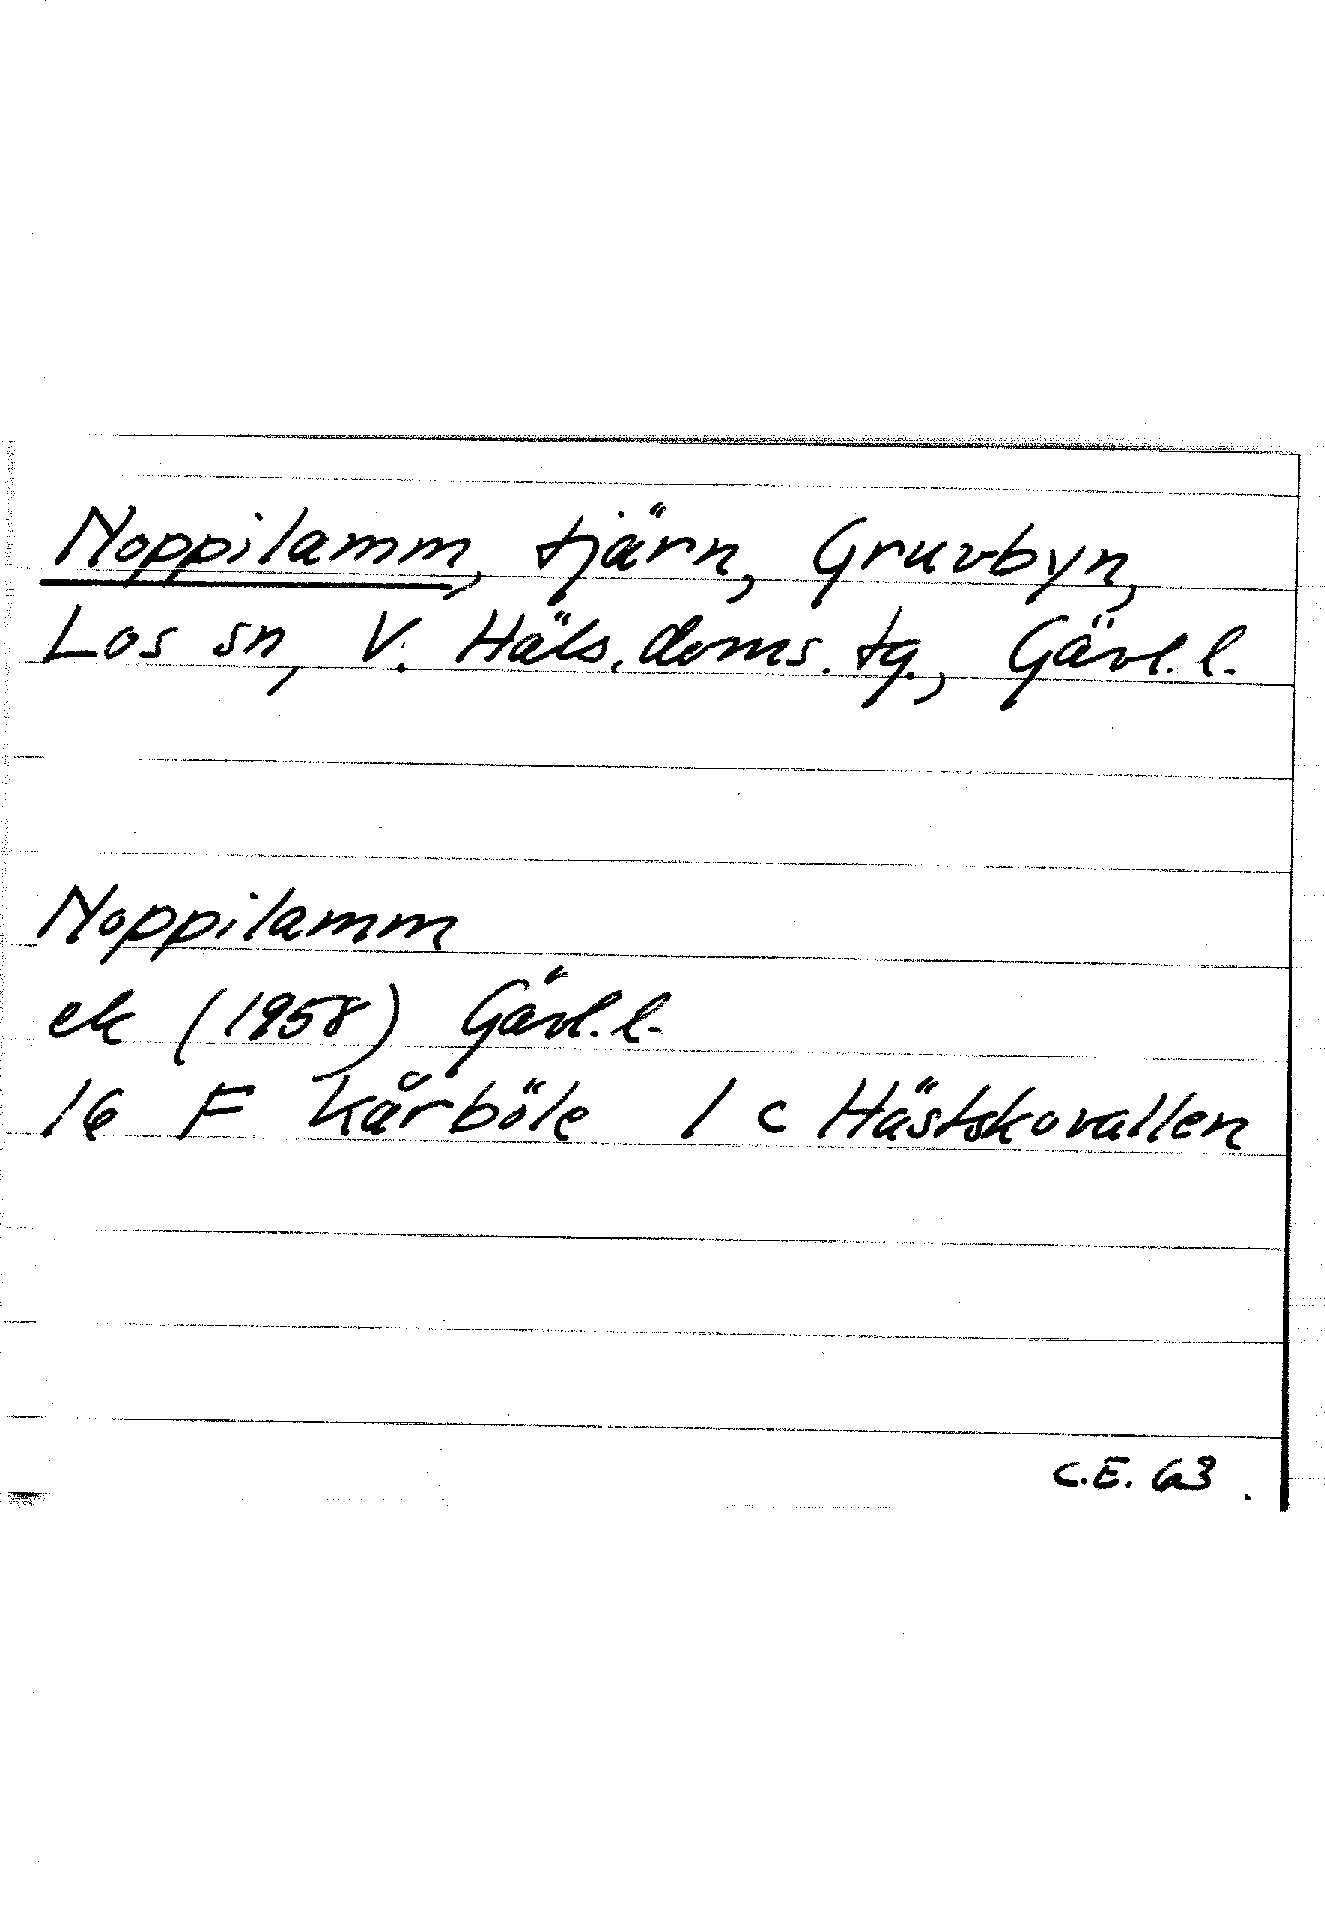 Noppilamm, tjärn, Gruvbyn,
Los sn, V. Häls. doms. tg., Gävl. l.
Noppilamm
ek (1958) Gävl. l.
16 F Kårböle 1 c Hästskovallen
C.E. 63